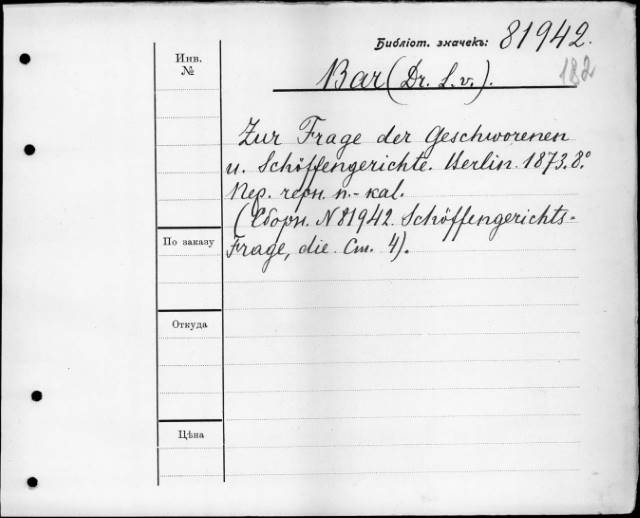 Библіот. значекъ: 81942.
182
Инв. №
Bar (Dr. L. v.).
Zur Frage der Geschworenen
u. Schöffengerichte. Berlin. 1873. 8.°
Пер. герм. п.-кал.
(Сборн. № 81942. Schöffengerichts-
Frage, die. Ст. 4).
По заказу
Откуда
Цѣна